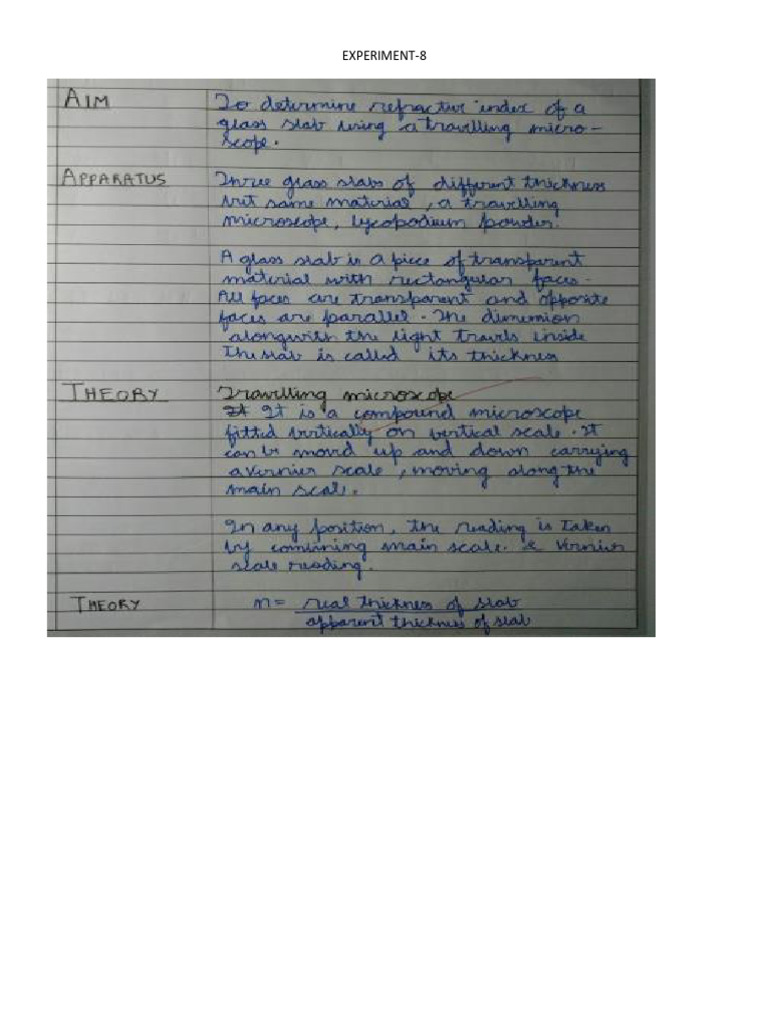 EXPERIMENT-8
AIM To determine refractive index of a
glass slab using a travelling micro-
scope.
APPARATUS Three glass slabs of different thickness
but same material, a travelling
microscope, lycopodium powder.
A glass slab is a piece of transparent
material with rectangular faces.
All faces are transparent and opposite
faces are parallel. The dimension
alongwith the light travels inside
the slab is called its thickness
THEORY Travelling microscope
It It is a compound microscope
fitted vertically on vertical scale. It
can be moved up and down carrying
a vernier scale, moving along the
main scale.
In any position, the reading is taken
by combining main scale & vernier
scale reading.
THEORY n = real thickness of slab
apparent thickness of slab